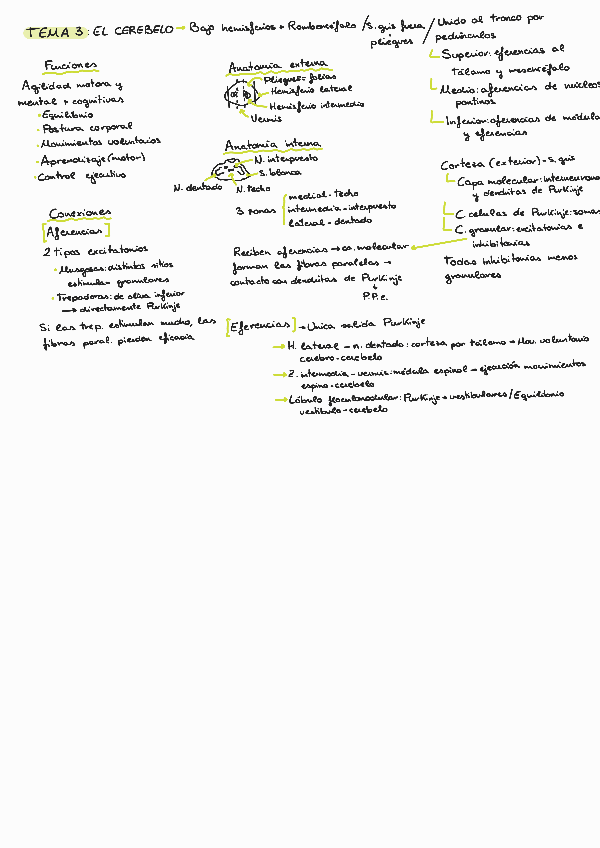 TEMA 3: EL CEREBELO → Bajo hemisferios + Rombencéfalo / S. gris fuera / Unido al tronco por
pliegues
pedúnculos
Superior: eferencias al
Tálamo y mesencéfalo
Medio: aferencias de núcleos
pontinos
Inferior: aferencias de médula
y eferencias
Funciones
Agilidad motora y
mental + cognitivas
• Equilibrio
• Postura corporal
• Movimientos voluntarios
• Aprendizaje (motor)
• Control ejecutivo
Anatomía externa
Pliegues = folias
Hemisferio lateral
Hemisferio intermedio
Vermis
Anatomía interna
N. interpuesto
S. blanca
N. dentado
N. techo
3 zonas
medial - techo
intermedia - interpuesto
lateral - dentado
Corteza (exterior) - S. gris
Capa molecular: interneuronas
y dendritas de Purkinje
C. celulas de Purkinje: somas
C. granular: excitatorias e
inhibitorias
Todas inhibitorias menos
granulares
Conexiones
[Aferencias]
2 tipos excitatorios
• Musgosas: distintos sitios
estimulan granulares
• Trepadoras: de oliva inferior
→ directamente Purkinje
Si las trep. estimulan mucho, las
fibras paral. pierden eficacia
Reciben aferencias → ca. molecular
forman las fibras paralelas →
contacto con dendritas de Purkinje
P.P.e.
[Eferencias] → Única salida Purkinje
→ H. lateral - n. dentado: corteza por tálamo → Mov. voluntario
cerebro-cerebelo
→ Z. intermedia - vermis: médula espinal → ejecución movimientos
espino-cerebelo
→ Lóbulo floculonodular: Purkinje → vestibulares / Equilibrio
vestíbulo-cerebelo